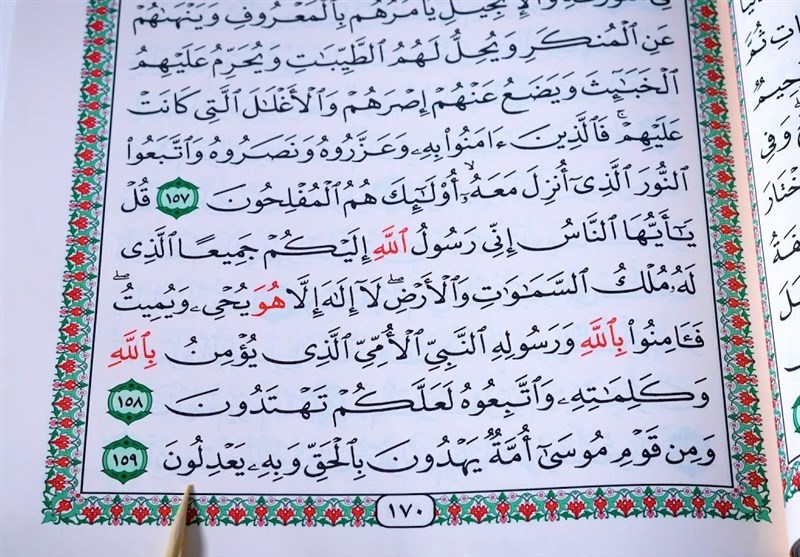 يَأْمُرُهُم بِٱلْمَعْرُوفِ وَيَنْهَىٰهُمْ
عَنِ ٱلْمُنكَرِ وَيُحِلُّ لَهُمُ ٱلطَّيِّبَٰتِ وَيُحَرِّمُ عَلَيْهِمُ
ٱلْخَبَٰٓئِثَ وَيَضَعُ عَنْهُمْ إِصْرَهُمْ وَٱلْأَغْلَٰلَ ٱلَّتِى كَانَتْ
عَلَيْهِمْ ۚ فَٱلَّذِينَ ءَامَنُوا۟ بِهِۦ وَعَزَّرُوهُ وَنَصَرُوهُ وَٱتَّبَعُوا۟
ٱلنُّورَ ٱلَّذِىٓ أُنزِلَ مَعَهُۥٓ ۙ أُو۟لَٰٓئِكَ هُمُ ٱلْمُفْلِحُونَ ١٥٧ قُلْ
يَٰٓأَيُّهَا ٱلنَّاسُ إِنِّى رَسُولُ ٱللَّهِ إِلَيْكُمْ جَمِيعًا ٱلَّذِى
لَهُۥ مُلْكُ ٱلسَّمَٰوَٰتِ وَٱلْأَرْضِ ۖ لَآ إِلَٰهَ إِلَّا هُوَ يُحْىِۦ وَيُمِيتُ ۖ
فَـَٔامِنُوا۟ بِٱللَّهِ وَرَسُولِهِ ٱلنَّبِىِّ ٱلْأُمِّىِّ ٱلَّذِى يُؤْمِنُ بِٱللَّهِ
وَكَلِمَٰتِهِۦ وَٱتَّبِعُوهُ لَعَلَّكُمْ تَهْتَدُونَ ١٥٨
وَمِن قَوْمِ مُوسَىٰٓ أُمَّةٌ يَهْدُونَ بِٱلْحَقِّ وَبِهِۦ يَعْدِلُونَ ١٥٩
١٧٠